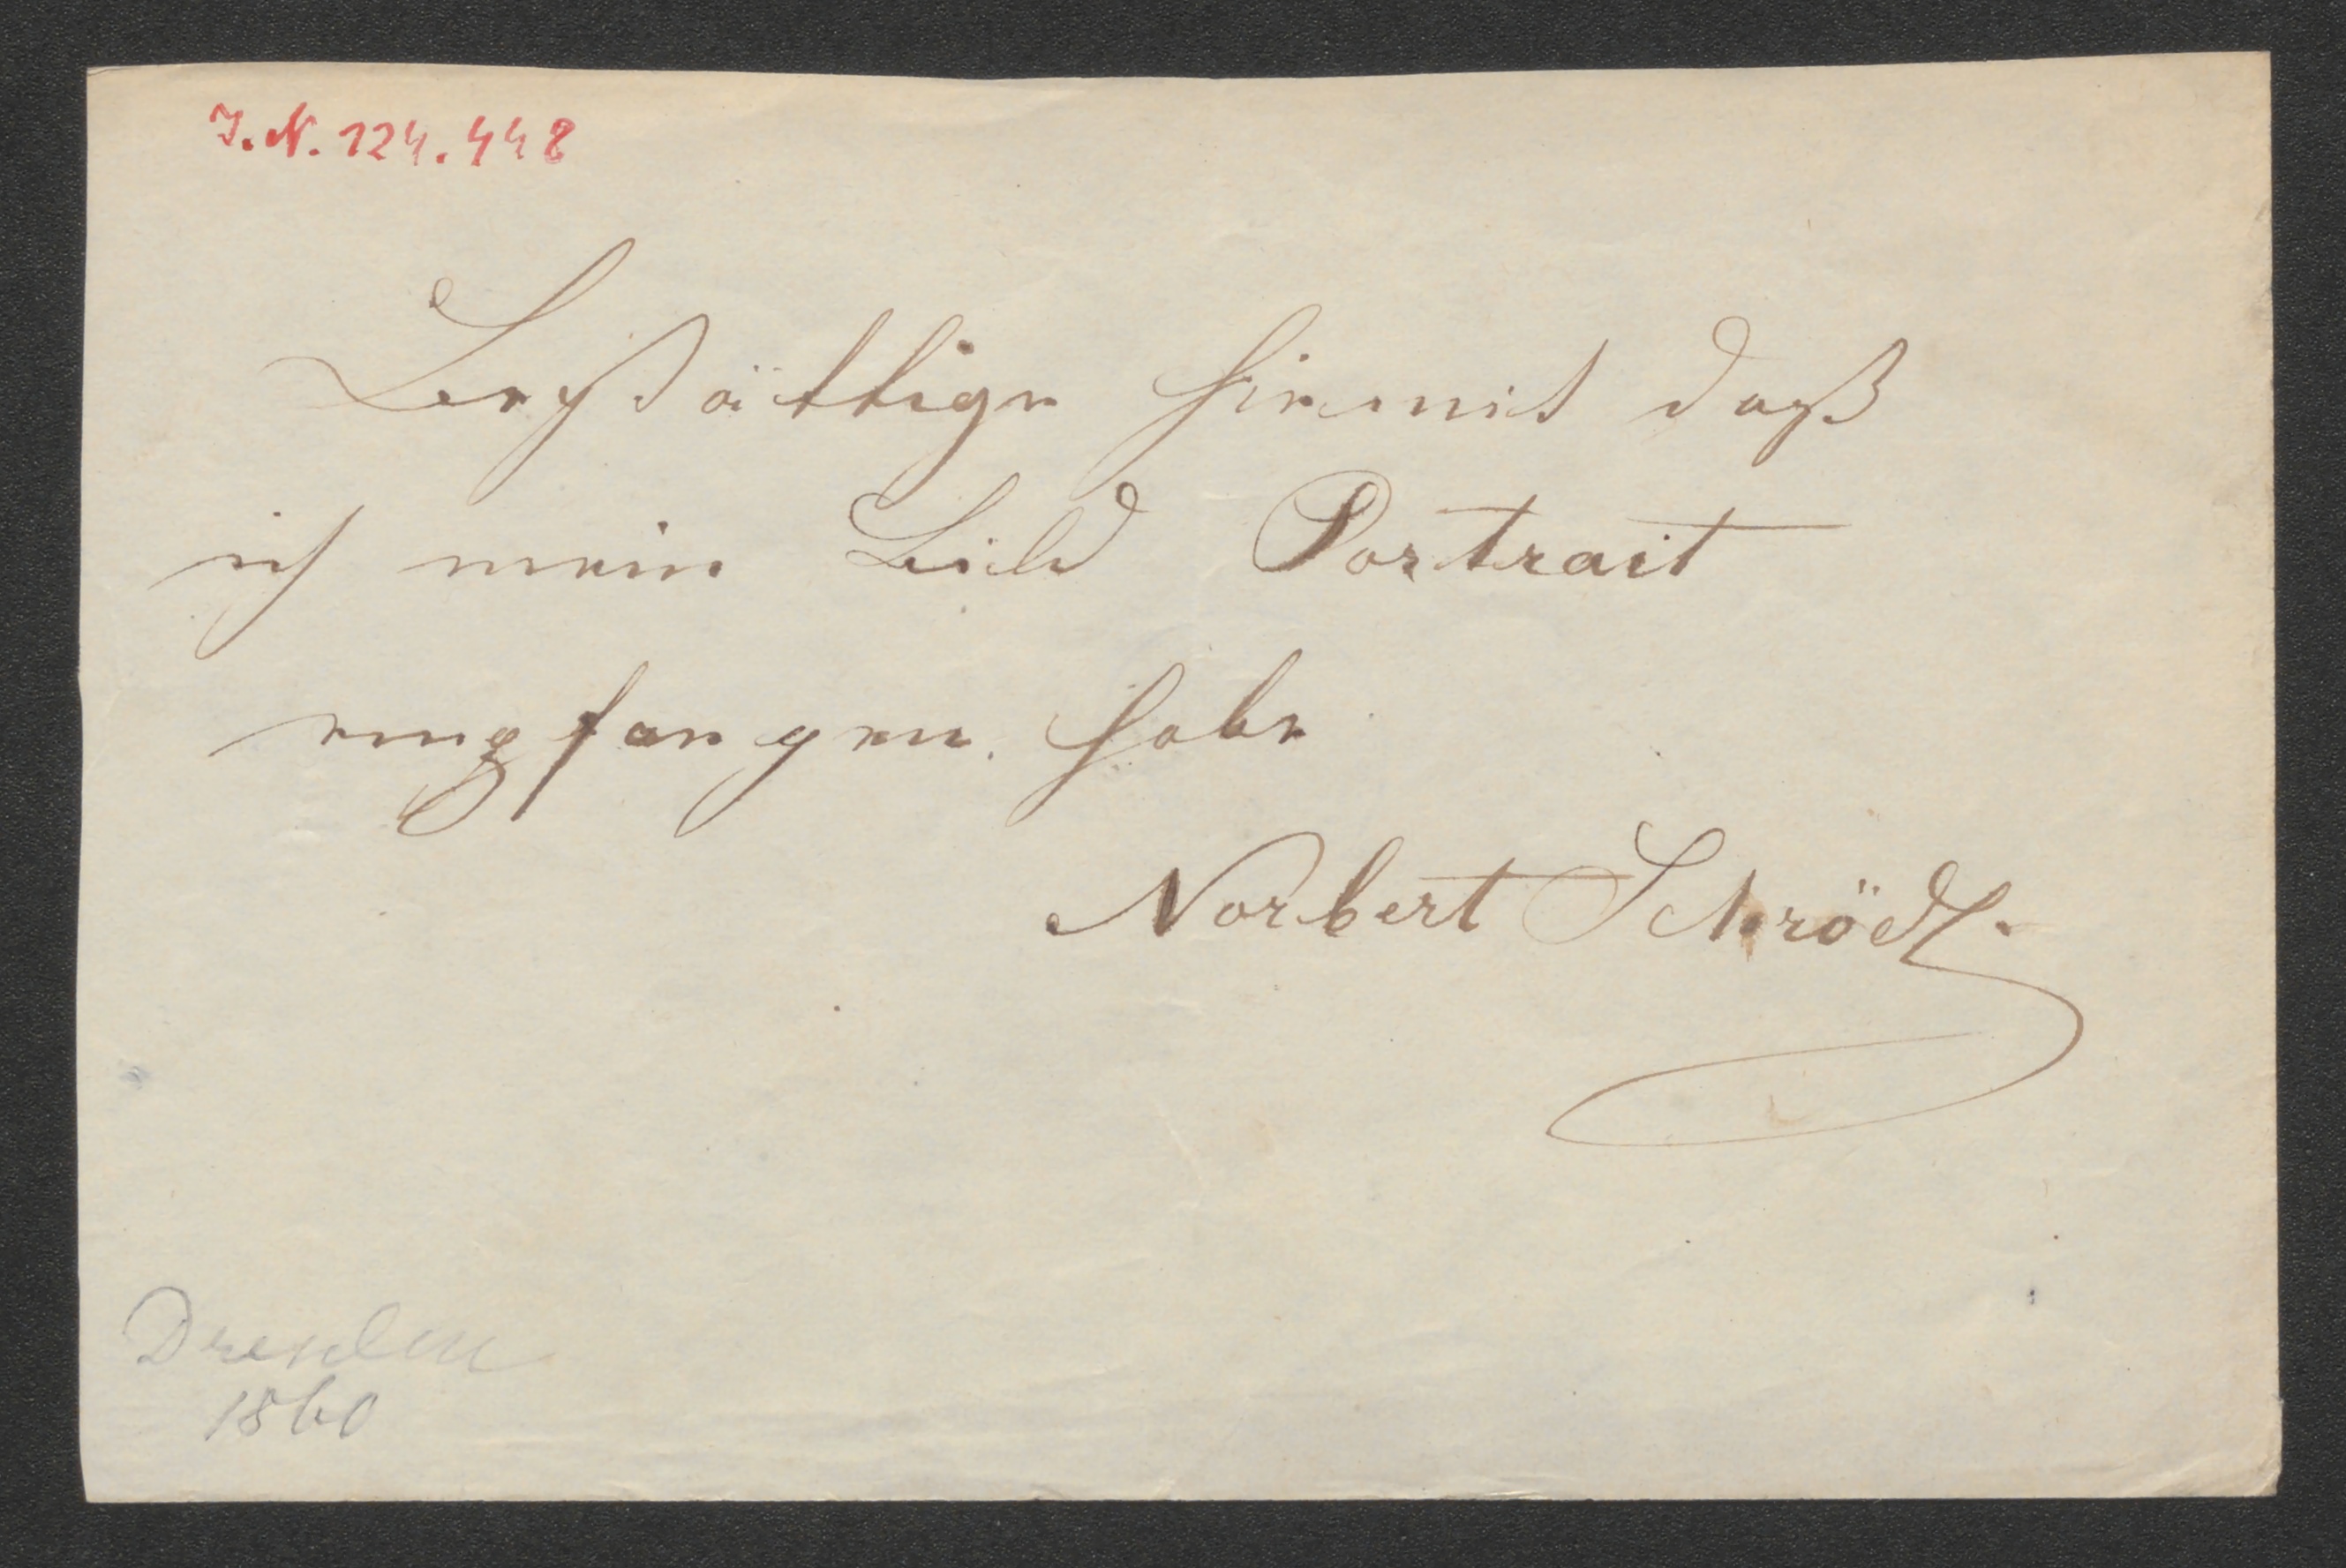 J. N. 124.448
Bestättige hiemit daß
ich mein Bild Portrait
empfangen habe
Norbert Schrödl.
Dresden
1860